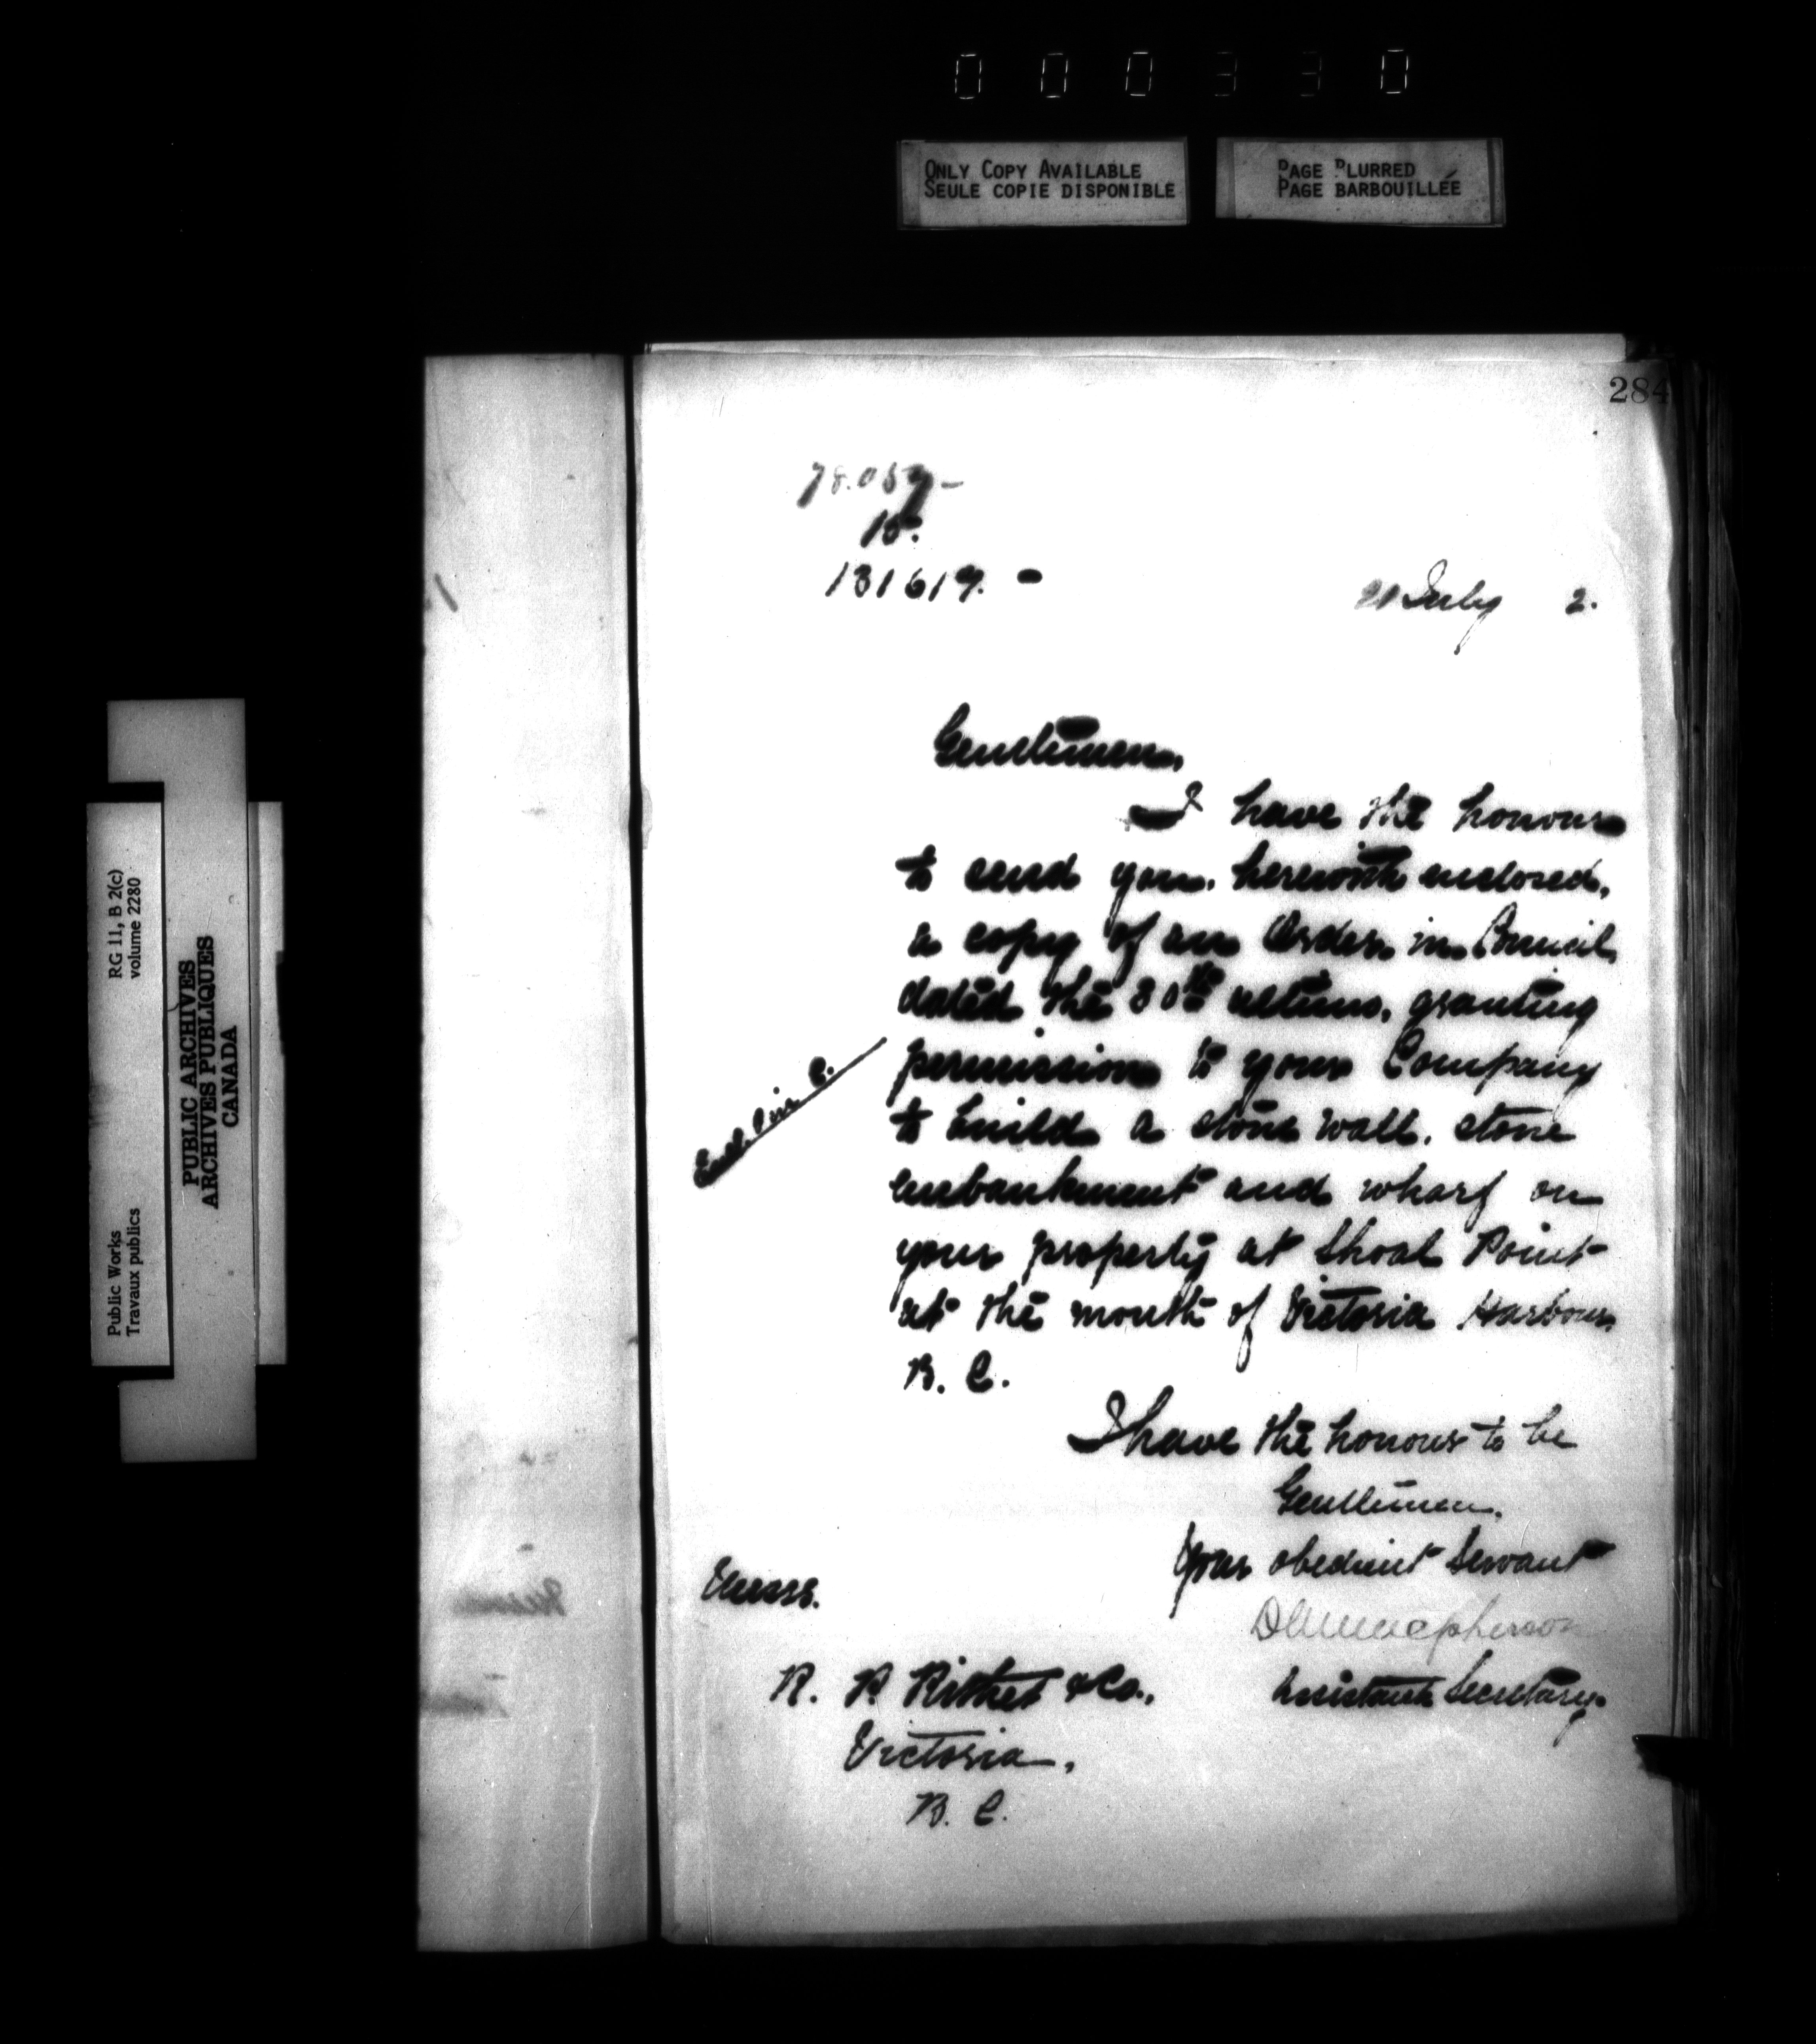 000330
ONLY COPY AVAILABLE
SEULE COPIE DISPONIBLE
PAGE BLURRED
PAGE BARBOUILLÉE
RG 11, B 2(c)
volume 2280
Public Works
Travaux publics
PUBLIC ARCHIVES
ARCHIVES PUBLIQUES
CANADA
284
15.
131619. -
21 July 2.
Gentlemen,
I have the honour
to send you, herewith enclosed,
a copy of an Order in Council,
dated the 30th ultimo, granting
permission to your Company
to build a stone wall, stone
embankment and wharf on
your property at Shoal Point
at the mouth of Victoria Harbour,
B. C.
Encl. O in C.
I have the honour to be
Gentlemen,
Your obedient Servant
D Macpherson
Assistant Secretary.
Messrs.
R. P. Rithet & Co.,
Victoria,
B. C.